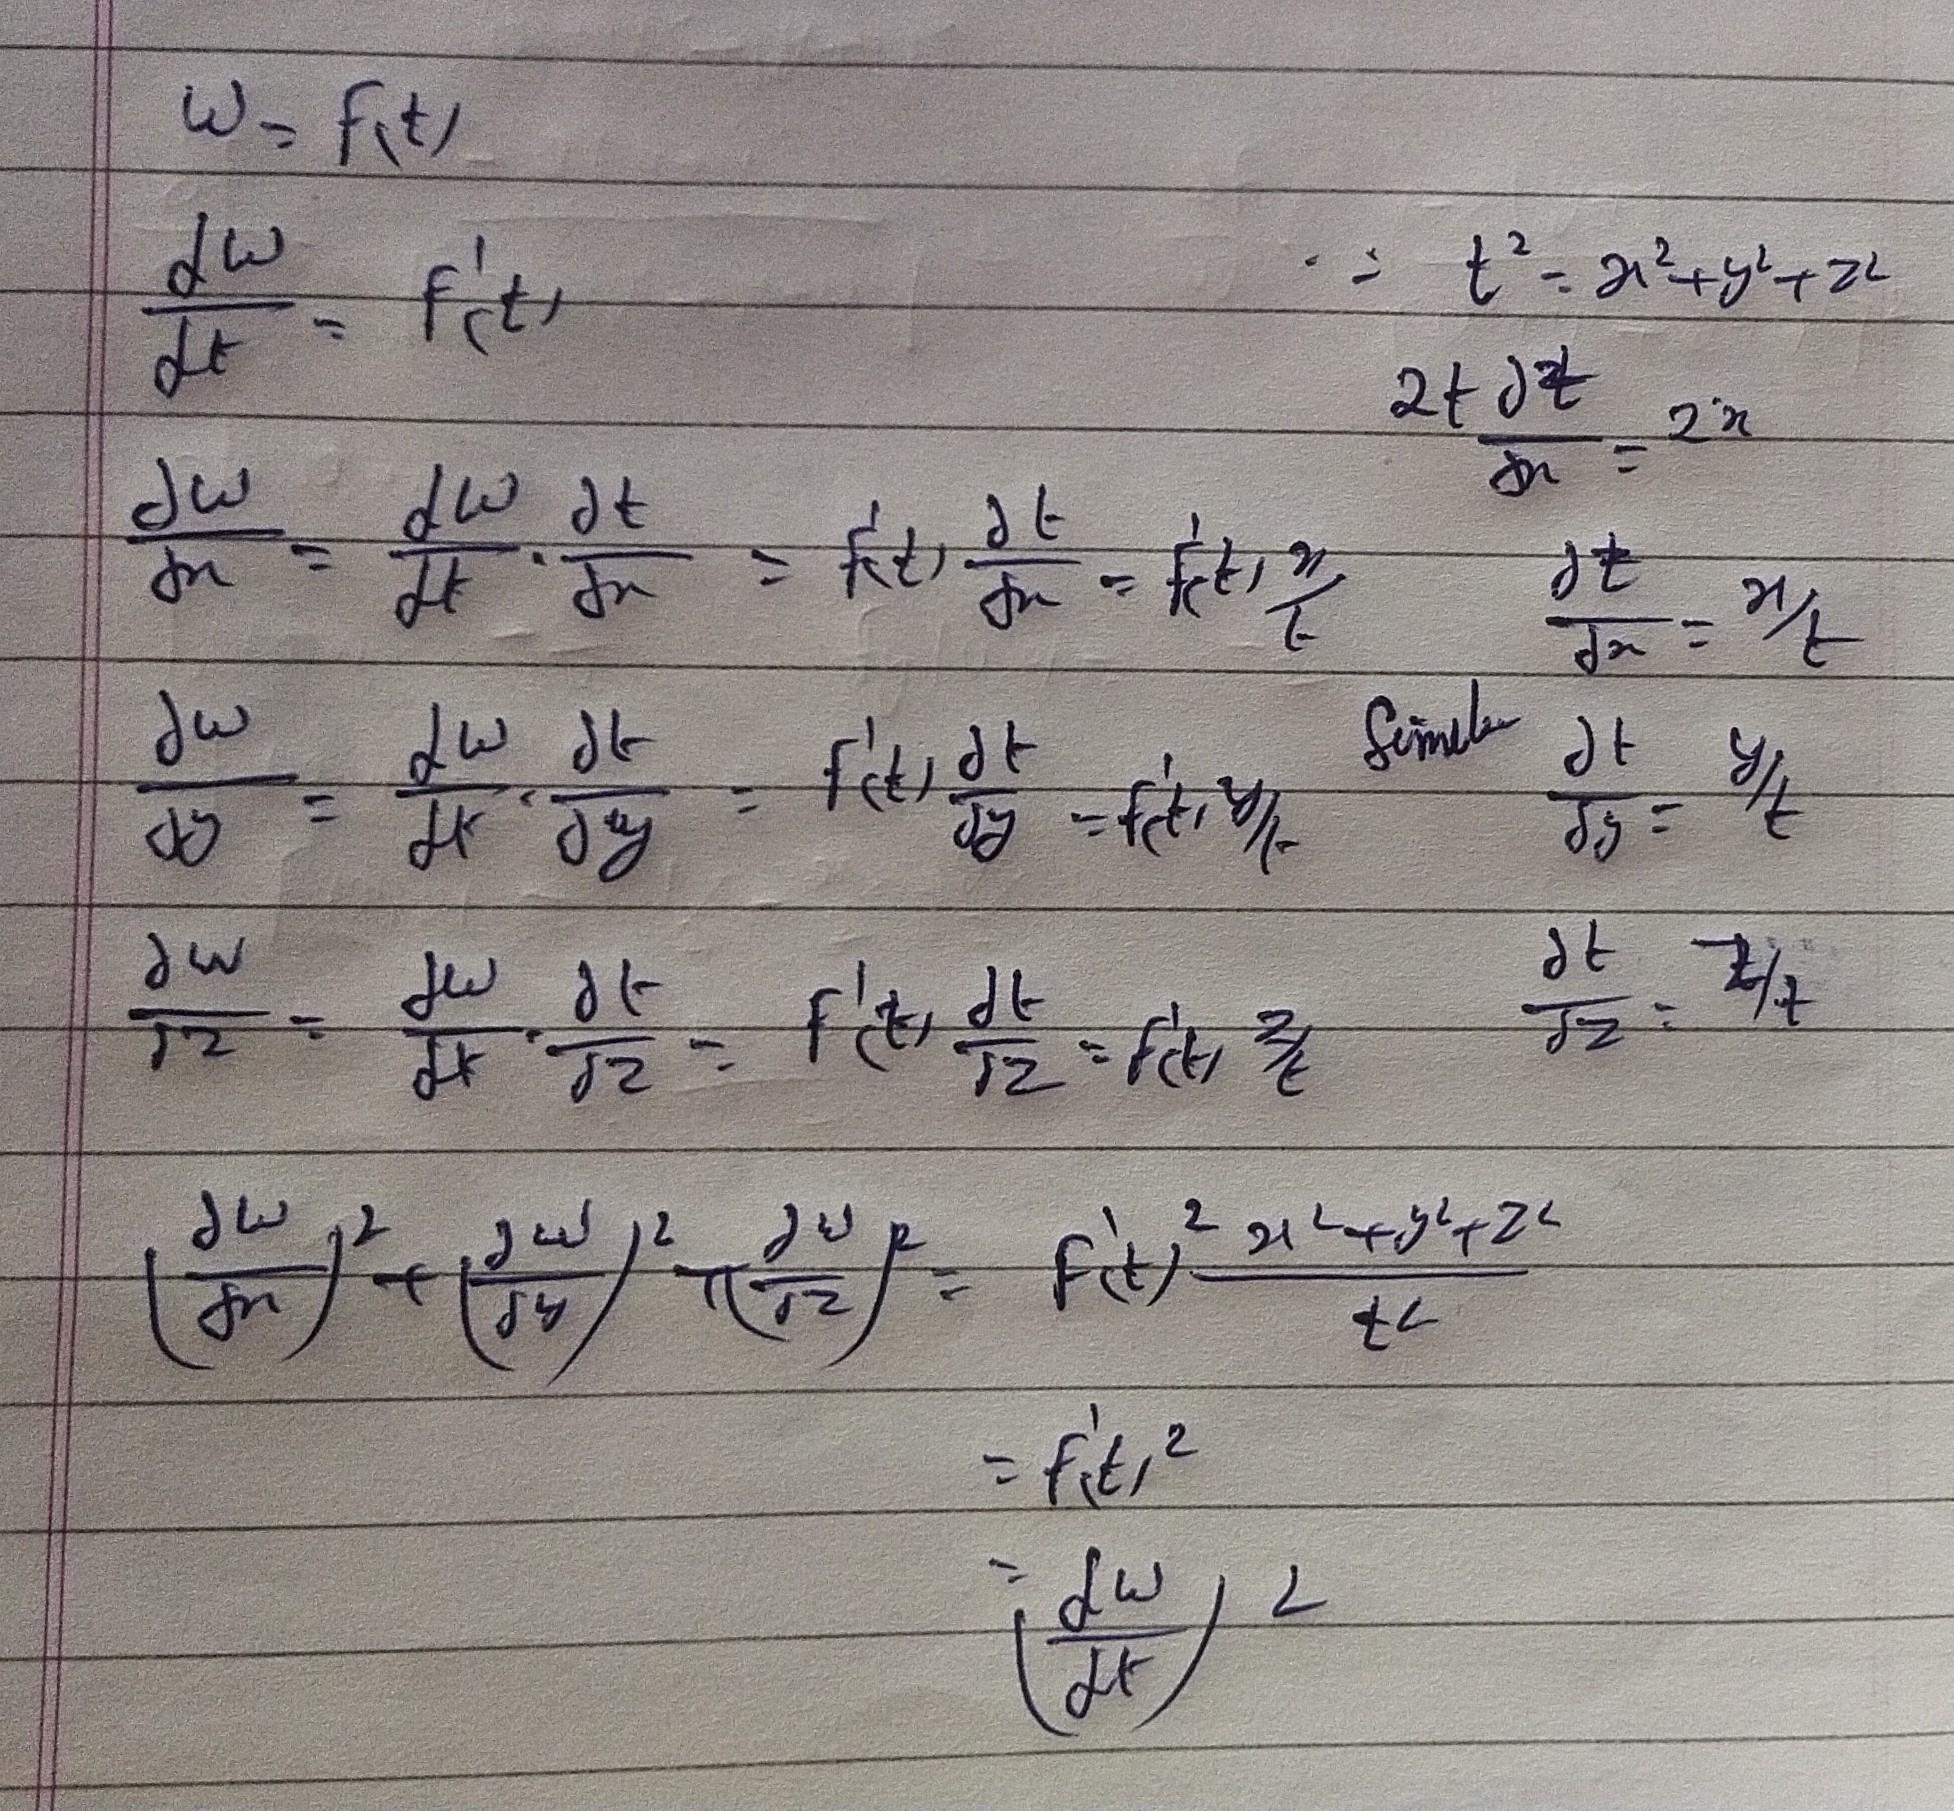 w = f(t)
dw/dt = f'(t)
∵ t² = x²+y²+z²
2t ∂t/∂x = 2x
∂w/∂x = dw/dt · ∂t/∂x = f'(t) ∂t/∂x = f'(t) x/t
∂t/∂x = x/t
∂w/∂y = dw/dt · ∂t/∂y = f'(t) ∂t/∂y = f'(t) y/t
∂t/∂y = y/t
∂w/∂z = dw/dt · ∂t/∂z = f'(t) ∂t/∂z = f'(t) z/t
∂t/∂z = z/t
(∂w/∂x)² + (∂w/∂y)² + (∂w/∂z)² = f'(t)² x²+y²+z²/t²
= f'(t)²
= (dw/dt)²